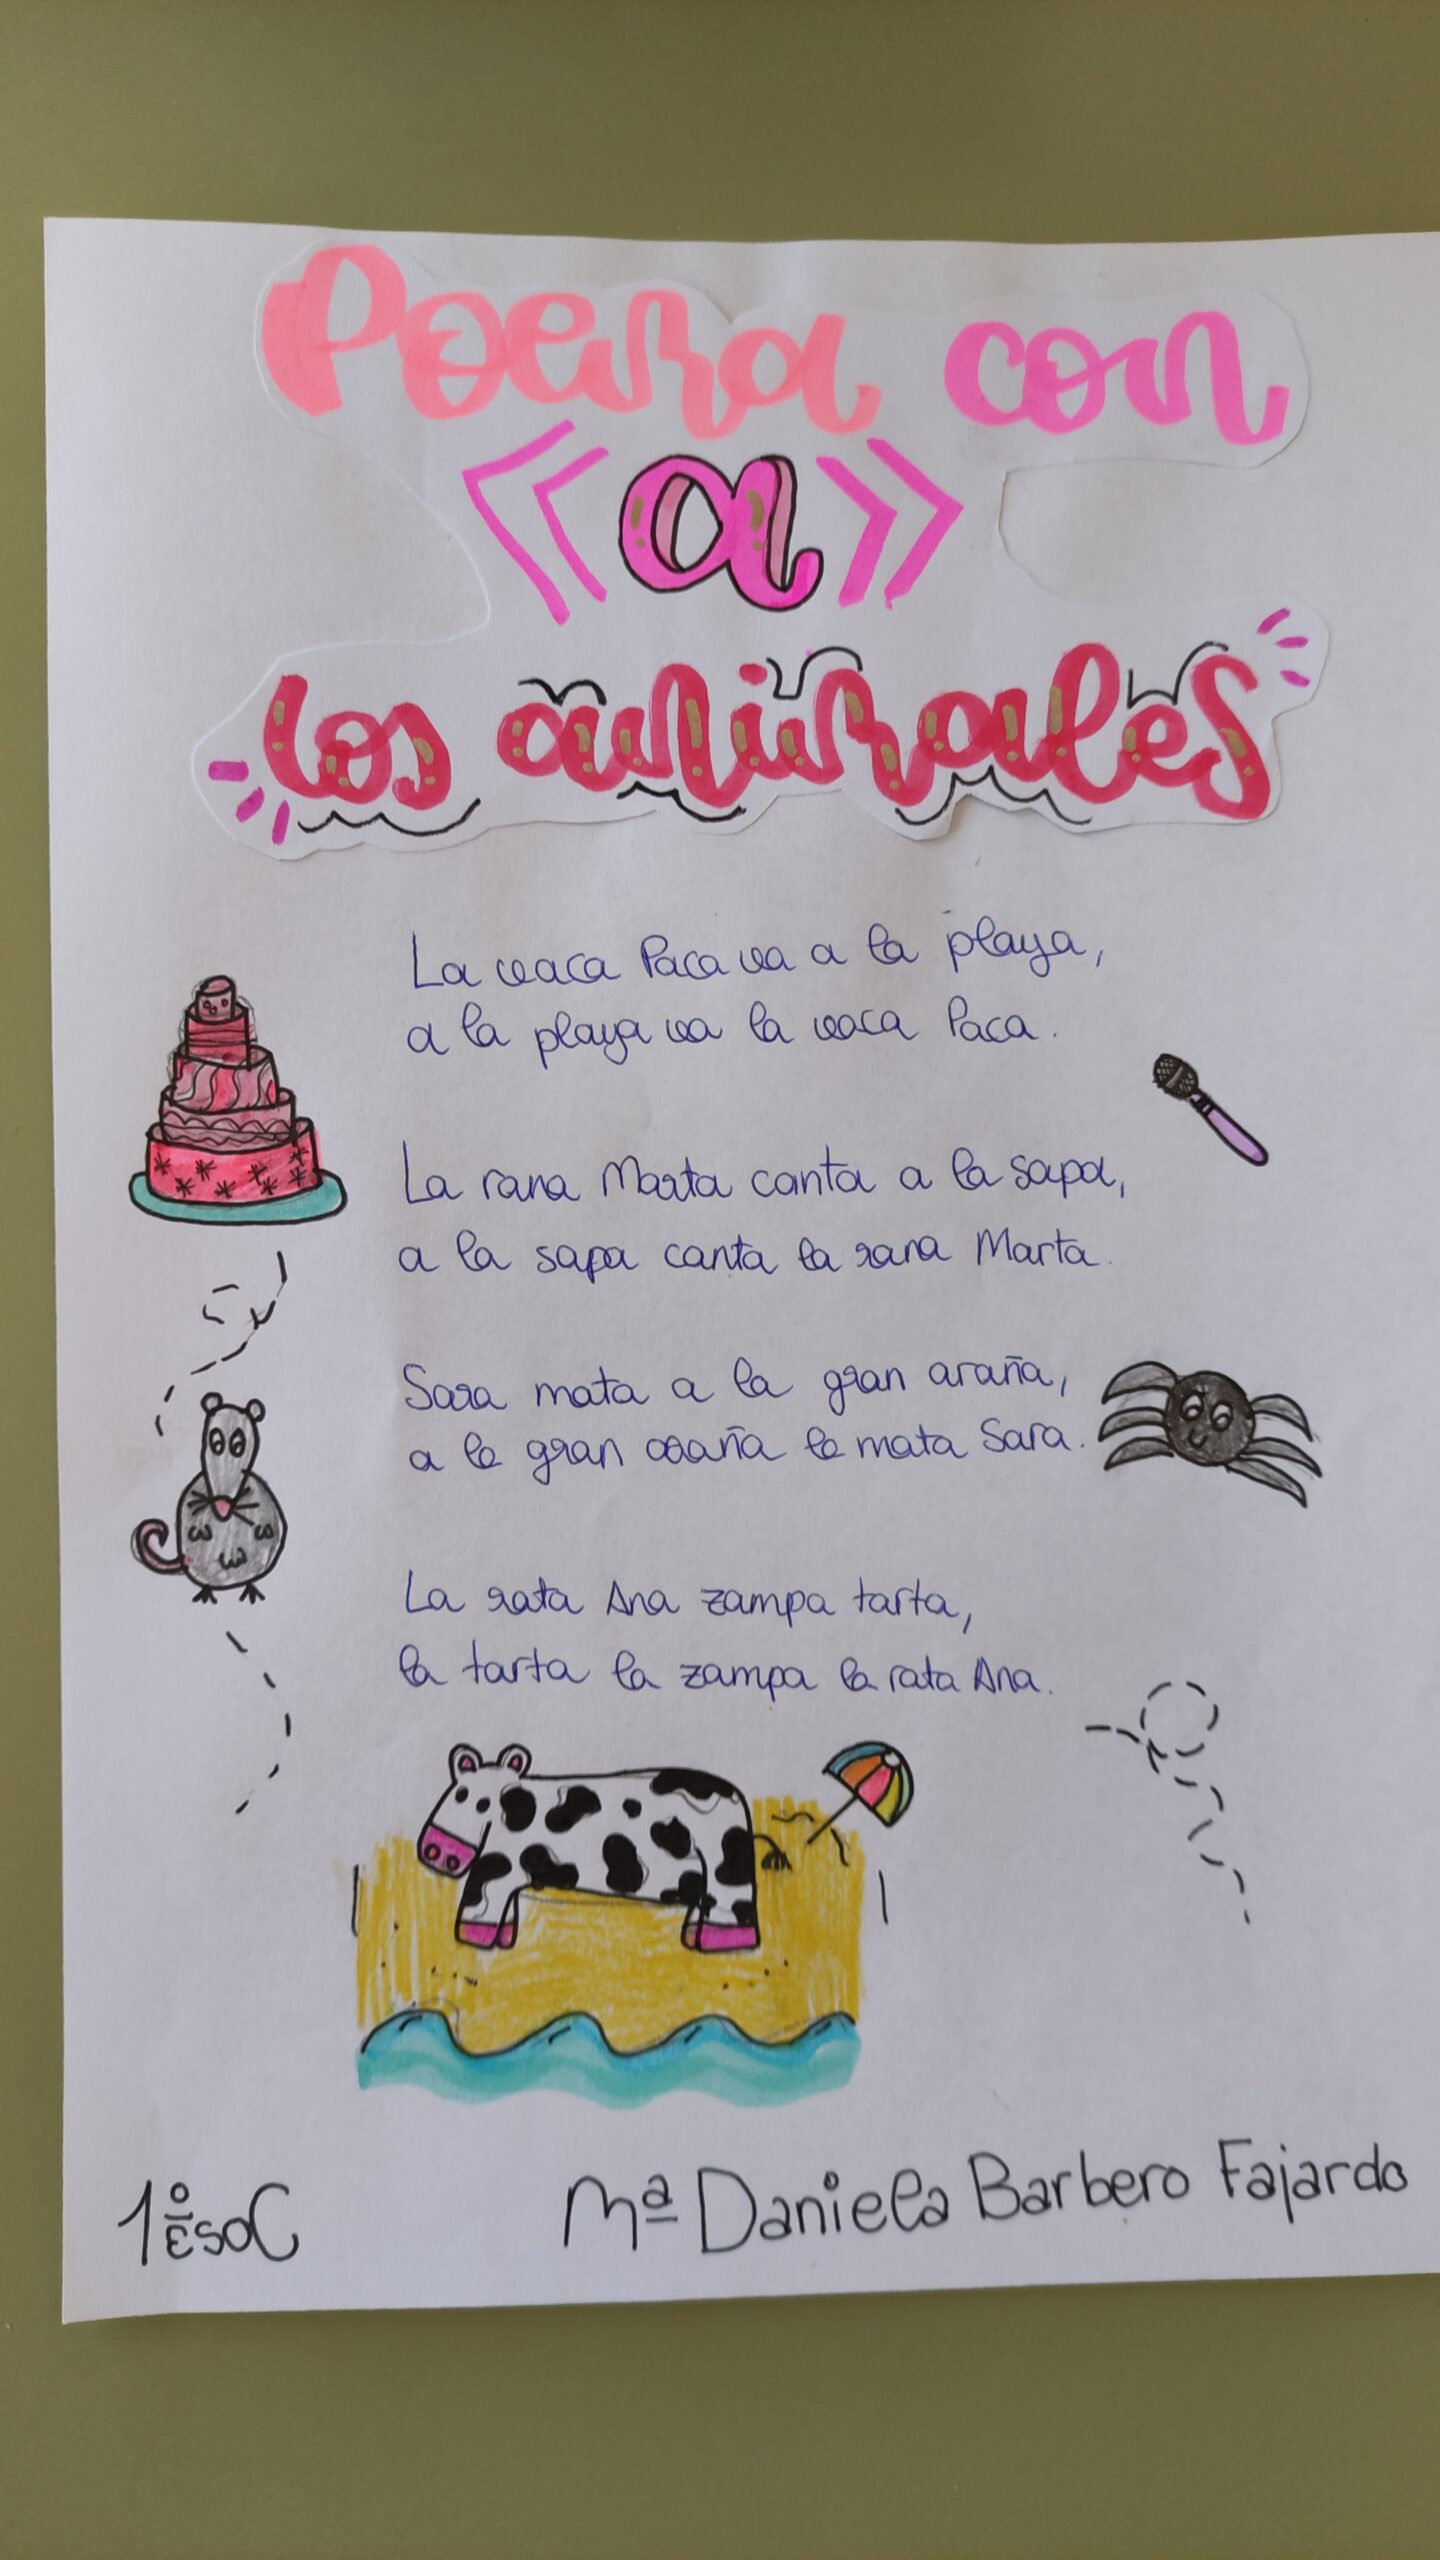 Poema con
«a»
los animales
La vaca Paca va a la playa,
a la playa va la vaca Paca.
La rana Marta canta a la sapa,
a la sapa canta la rana Marta.
Sara mata a la gran araña,
a la gran araña la mata Sara.
La rata Ana zampa tarta,
la tarta la zampa la rata Ana.
1º ESO C
Mª Daniela Barbero Fajardo